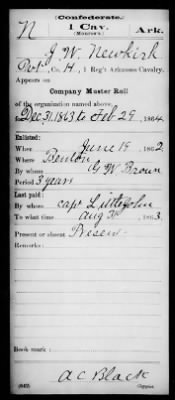 (Confederate.)
N 1 Cav. Ark.
(Monroe's.)
J. W. Newkirk
Pvt, Co. H, 1 Reg't Arkansas Cavalry.
Appears on
Company Muster Roll
of the organization named above,
for Dec 31, 1863 to Feb 29, 1864.
Enlisted:
When June 19, 1862
Where Benton
By whom G W Brown
Period 3 years
Last paid:
By whom Capt Littlejohn
To what time Aug 31, 1863.
Present or absent Present
Remarks:
Book mark:
(642) A C Black
Copyist.